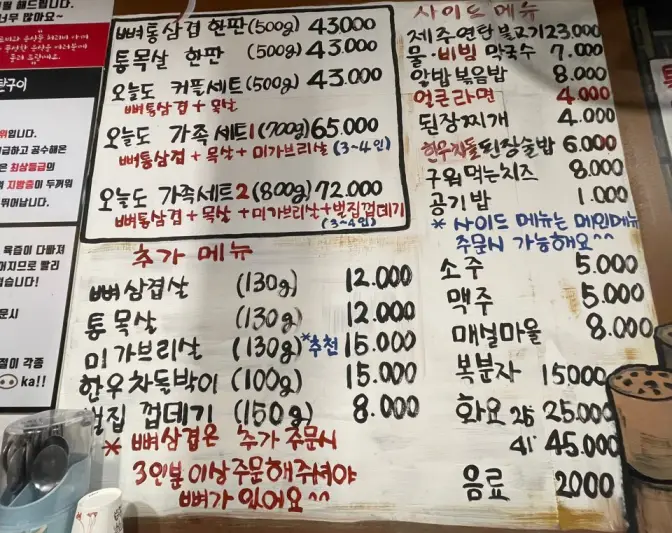 뼈통삼겹 한판 (500g) 43000
통목살 한판 (500g) 43.000
오늘도 커플세트 (500g) 43.000
뼈통삼겹 + 목살
오늘도 가족세트1 (700g) 65.000
뼈통삼겹 + 목살 + 미가브리살 (3~4인)
오늘도 가족세트2 (800g) 72.000
뼈통삼겹 + 목살 + 미가브리살 + 벌집껍데기
(3~4인)
추가 메뉴
뼈삼겹살 (130g) 12.000
통목살 (130g) 12.000
미가브리살 (130g) *추천 15.000
한우차돌박이 (100g) 15.000
벌집 껍데기 (150g) 8.000
* 뼈삼겹은 추가 주문시
3인분이상 주문해주셔야
뼈가 있어요^^
사이드 메뉴
제주연탄불고기 23.000
물·비빔 막국수 7.000
알밥볶음밥 8.000
얼큰라면 4.000
된장찌개 4.000
한우차돌된장술밥 6.000
구워먹는치즈 8.000
공기밥 1.000
* 사이드 메뉴는 메인메뉴
주문시 가능해요^^
소주 5.000
맥주 5.000
매실마을 8.000
복분자 15000
화요 25 25.000
41 45.000
음료 2000
위입니다.
최상등급의
지방층이 두꺼워
뛰어납니다.
육즙이 다빠져
빨리
주문시
각종
ka!!